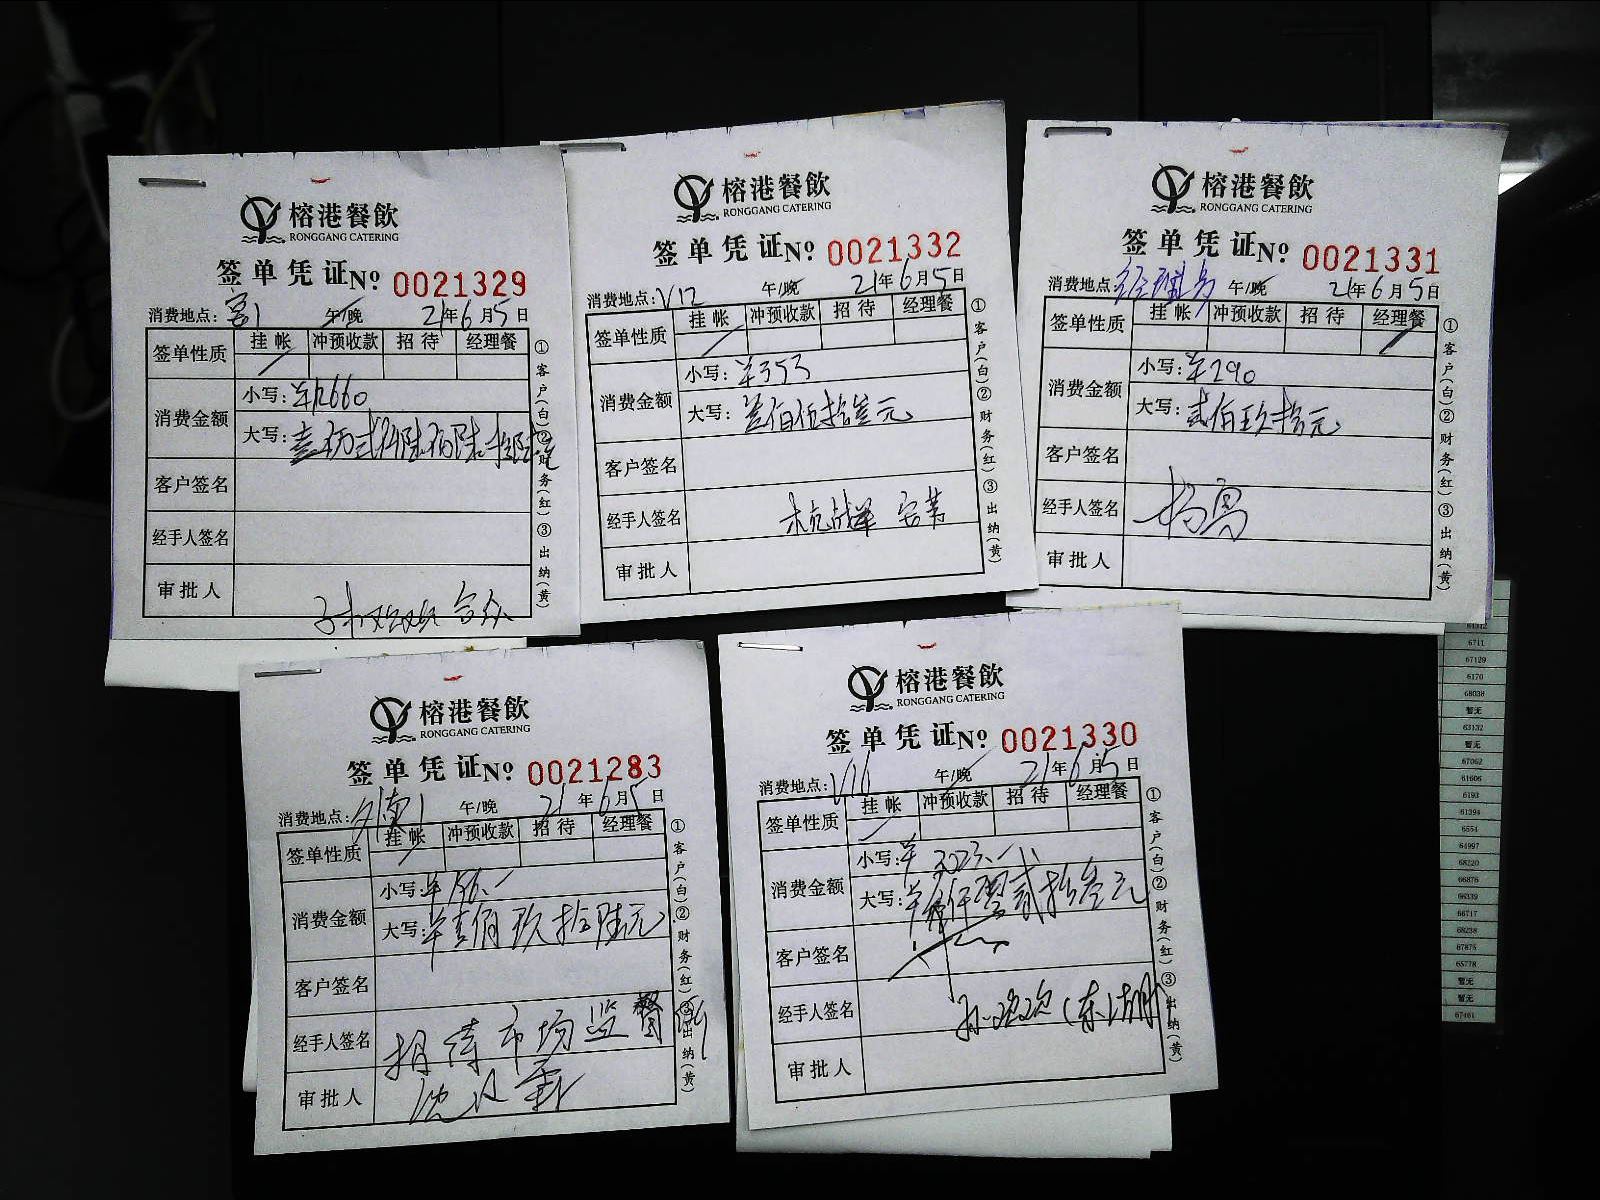 榕港餐飲
RONGGANG CATERING
签单凭证 No 0021329
消费地点: 午/晚 21年6月5日
签单性质 挂帐 冲预收款 招待 经理餐
消费金额 小写: ¥12660
大写: 壹万贰仟陆佰陆拾元
客户签名
经手人签名
审批人
①客户(白)②财务(红)③出纳(黄)
榕港餐飲
RONGGANG CATERING
签单凭证 No 0021332
消费地点: V12 午/晚 21年6月5日
签单性质 挂帐 冲预收款 招待 经理餐
消费金额 小写: ¥353
大写: 叁佰伍拾叁元
客户签名
经手人签名
审批人
①客户(白)②财务(红)③出纳(黄)
榕港餐飲
RONGGANG CATERING
签单凭证 No 0021331
消费地点: 午/晚 21年6月5日
签单性质 挂帐 冲预收款 招待 经理餐
消费金额 小写: ¥290
大写: 贰佰玖拾元
客户签名
经手人签名
审批人
①客户(白)②财务(红)③出纳(黄)
榕港餐飲
RONGGANG CATERING
签单凭证 No 0021283
消费地点: 午/晚 21年6月5日
签单性质 挂帐 冲预收款 招待 经理餐
消费金额 小写: ¥196.-
大写: ¥壹佰玖拾陆元
客户签名
经手人签名 招待市场监督所
审批人
①客户(白)②财务(红)③出纳(黄)
榕港餐飲
RONGGANG CATERING
签单凭证 No 0021330
消费地点: V16 午/晚 21年6月5日
签单性质 挂帐 冲预收款 招待 经理餐
消费金额 小写: ¥3023.-
大写: ¥叁仟零贰拾叁元
客户签名
经手人签名
审批人
①客户(白)②财务(红)③出纳(黄)
6711
67129
6170
68038
暂无
63132
暂无
67062
61606
6193
61394
6554
64997
68220
66876
66339
66717
68238
67875
65778
暂无
暂无
67461